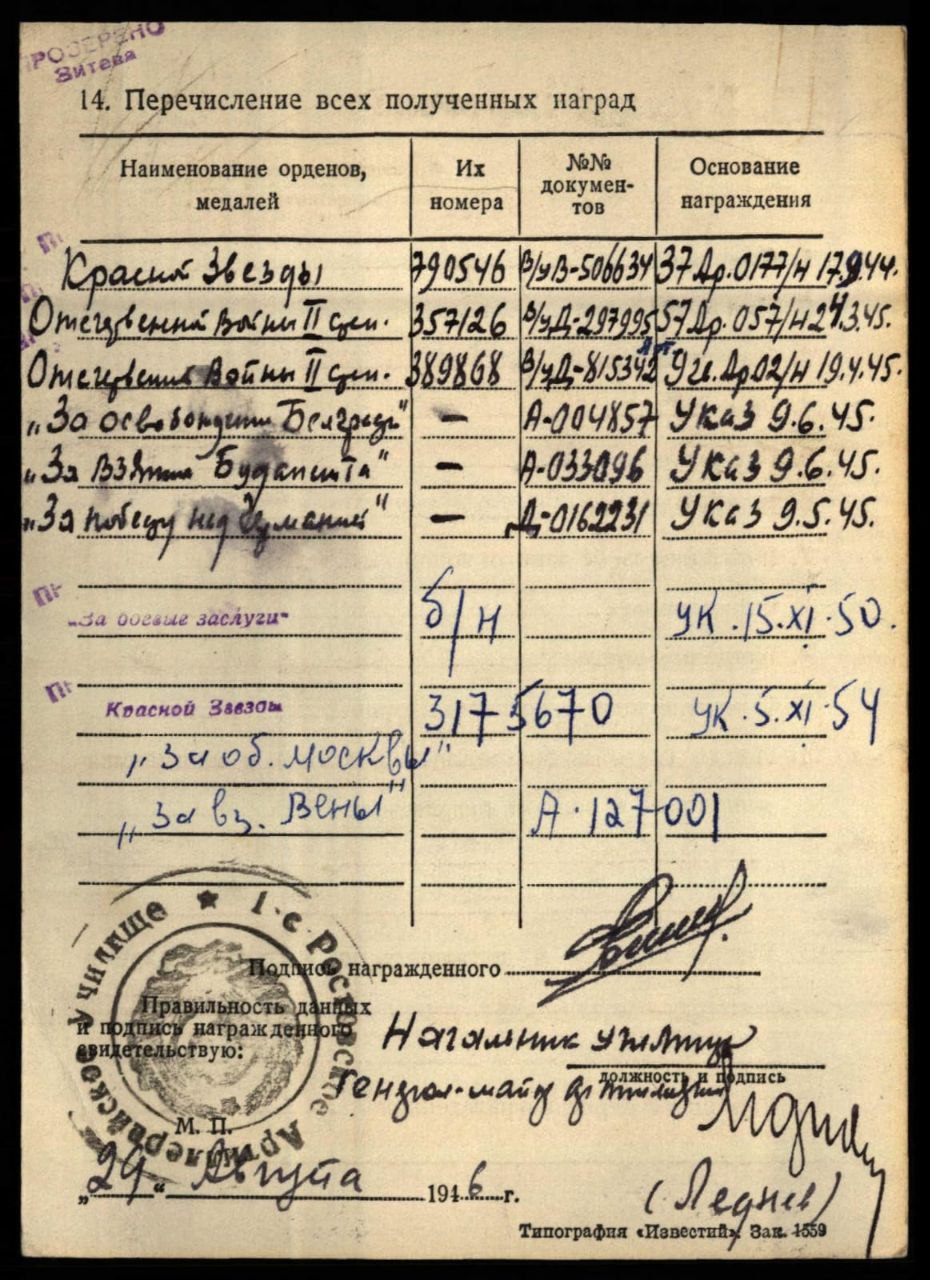 ПРОВЕРЕНО
14. Перечисление всех полученных наград
Наименование орденов, медалей Их номера №№ документов Основание награждения
Красной Звезды 790546 В/уВ-506634 37 Др. 0177/н 17.9.44.
Отечественной Войны II степ. 357126 В/уД-297995 57 Др. 057/н 24.3.45.
Отечественной Войны II степ. 389868 В/уД-815342 9 гв. Др 02/н 19.4.45.
„За освобождение Белграда" — А-004857 Указ 9.6.45.
„За взятие Будапешта" — А-033096 Указ 9.6.45.
„За победу над Германией" — Д-0162231 Указ 9.5.45.
„За боевые заслуги" б/н УК. 15.XI.50.
Красной Звезды 3175670 УК. 5.XI.54
„За об. Москвы"
„За вз. Вены" А.127001
Подпись награжденного
Правильность данных
и подпись награжденного
свидетельствую:
Начальник училища
должность и подпись
Генерал-майор артиллерии
1-е Ростовское Артиллерийское Училище
М. П.
„29" Августа 1946 г.
(Леднев)
Типография «Известий». Зак. 1559